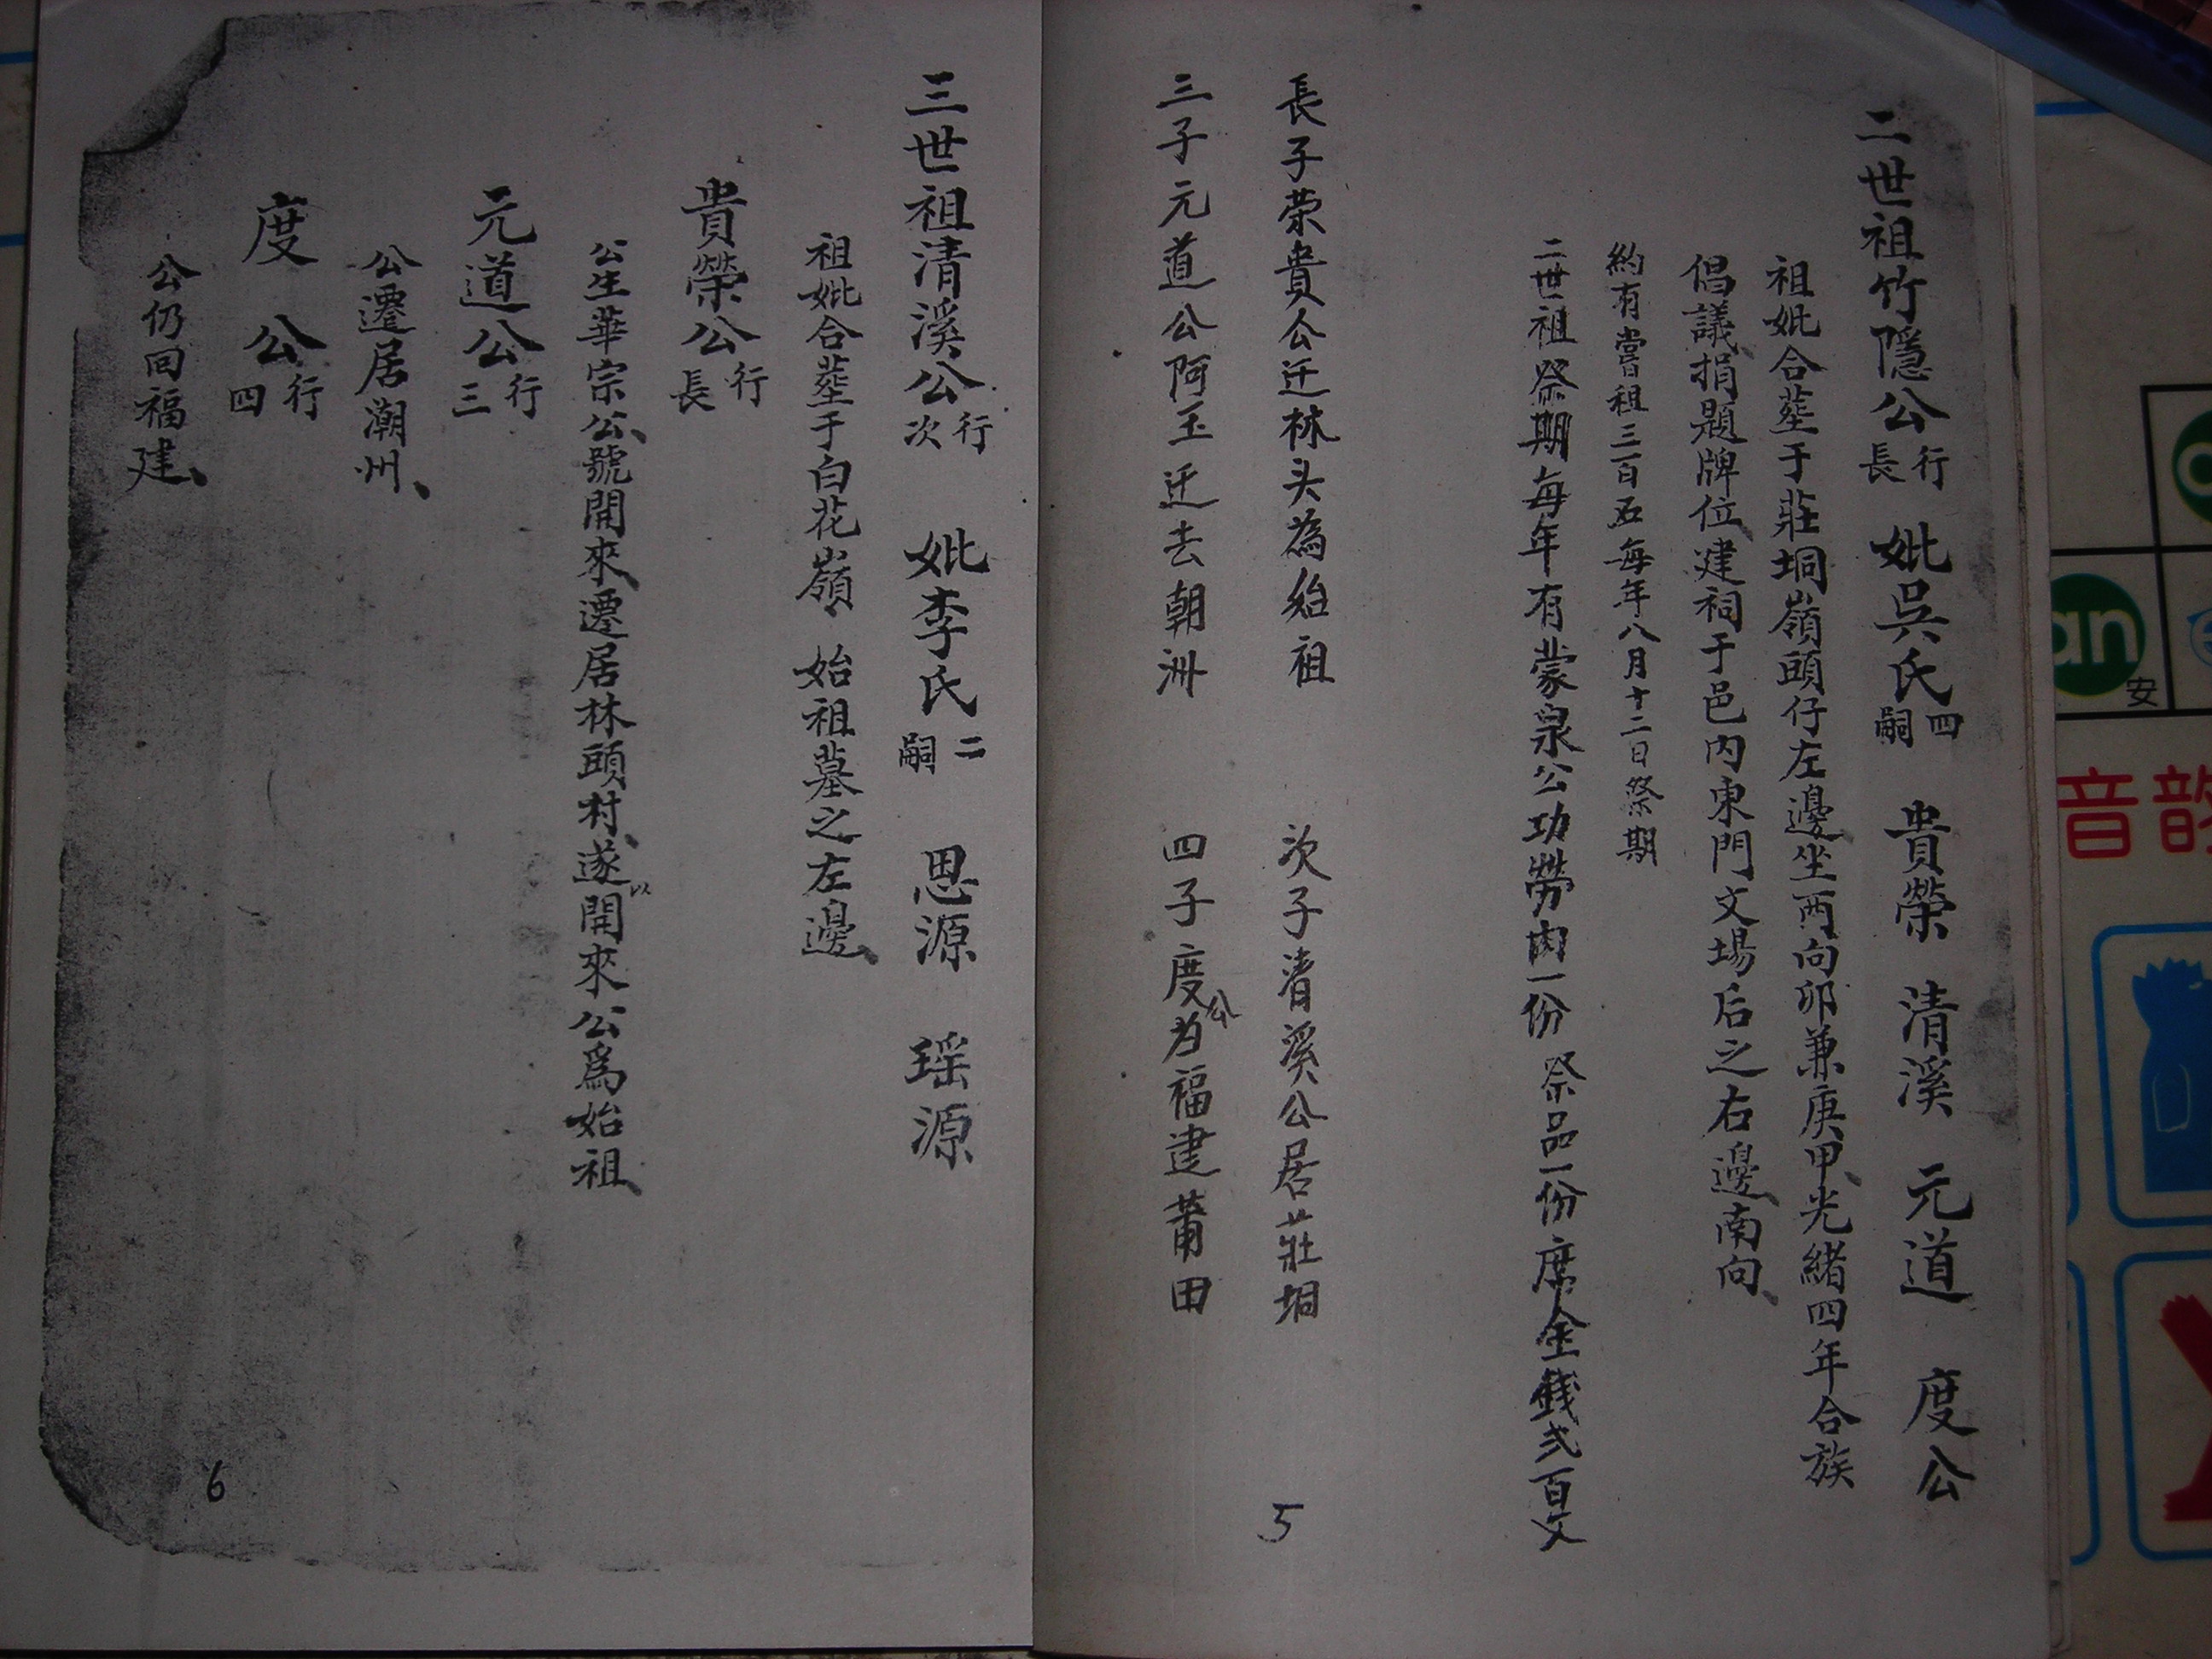 二世祖竹隱公行長 妣吳氏四嗣 貴榮 清溪 元道 度公
祖妣合塟于莊垌嶺頭仔左邊坐西向卯兼庚甲、光緒四年合族
倡議捐題牌位、建祠于邑內東門文場后之右邊、南向、
約有嘗祖三百五每年八月十二日祭期
二世祖祭期每年有蒙泉公功勞肉一份 祭品一份席金錢弍百文
長子荣貴公迁林头為始祖 次子清溪公居莊垌
三子元道公阿玉迁去朝洲 四子度公为福建莆田
5
三世祖清溪公行次 妣李氏二嗣 思源 瑶源
祖妣合塟于白花嶺、始祖墓之左邊、
貴榮公行長
公生華宗公、號開來、遷居林頭村、遂以開來公爲始祖、
元道公行三
公遷居潮州、
度公行四
公仍回福建、
6
an
安
音韵